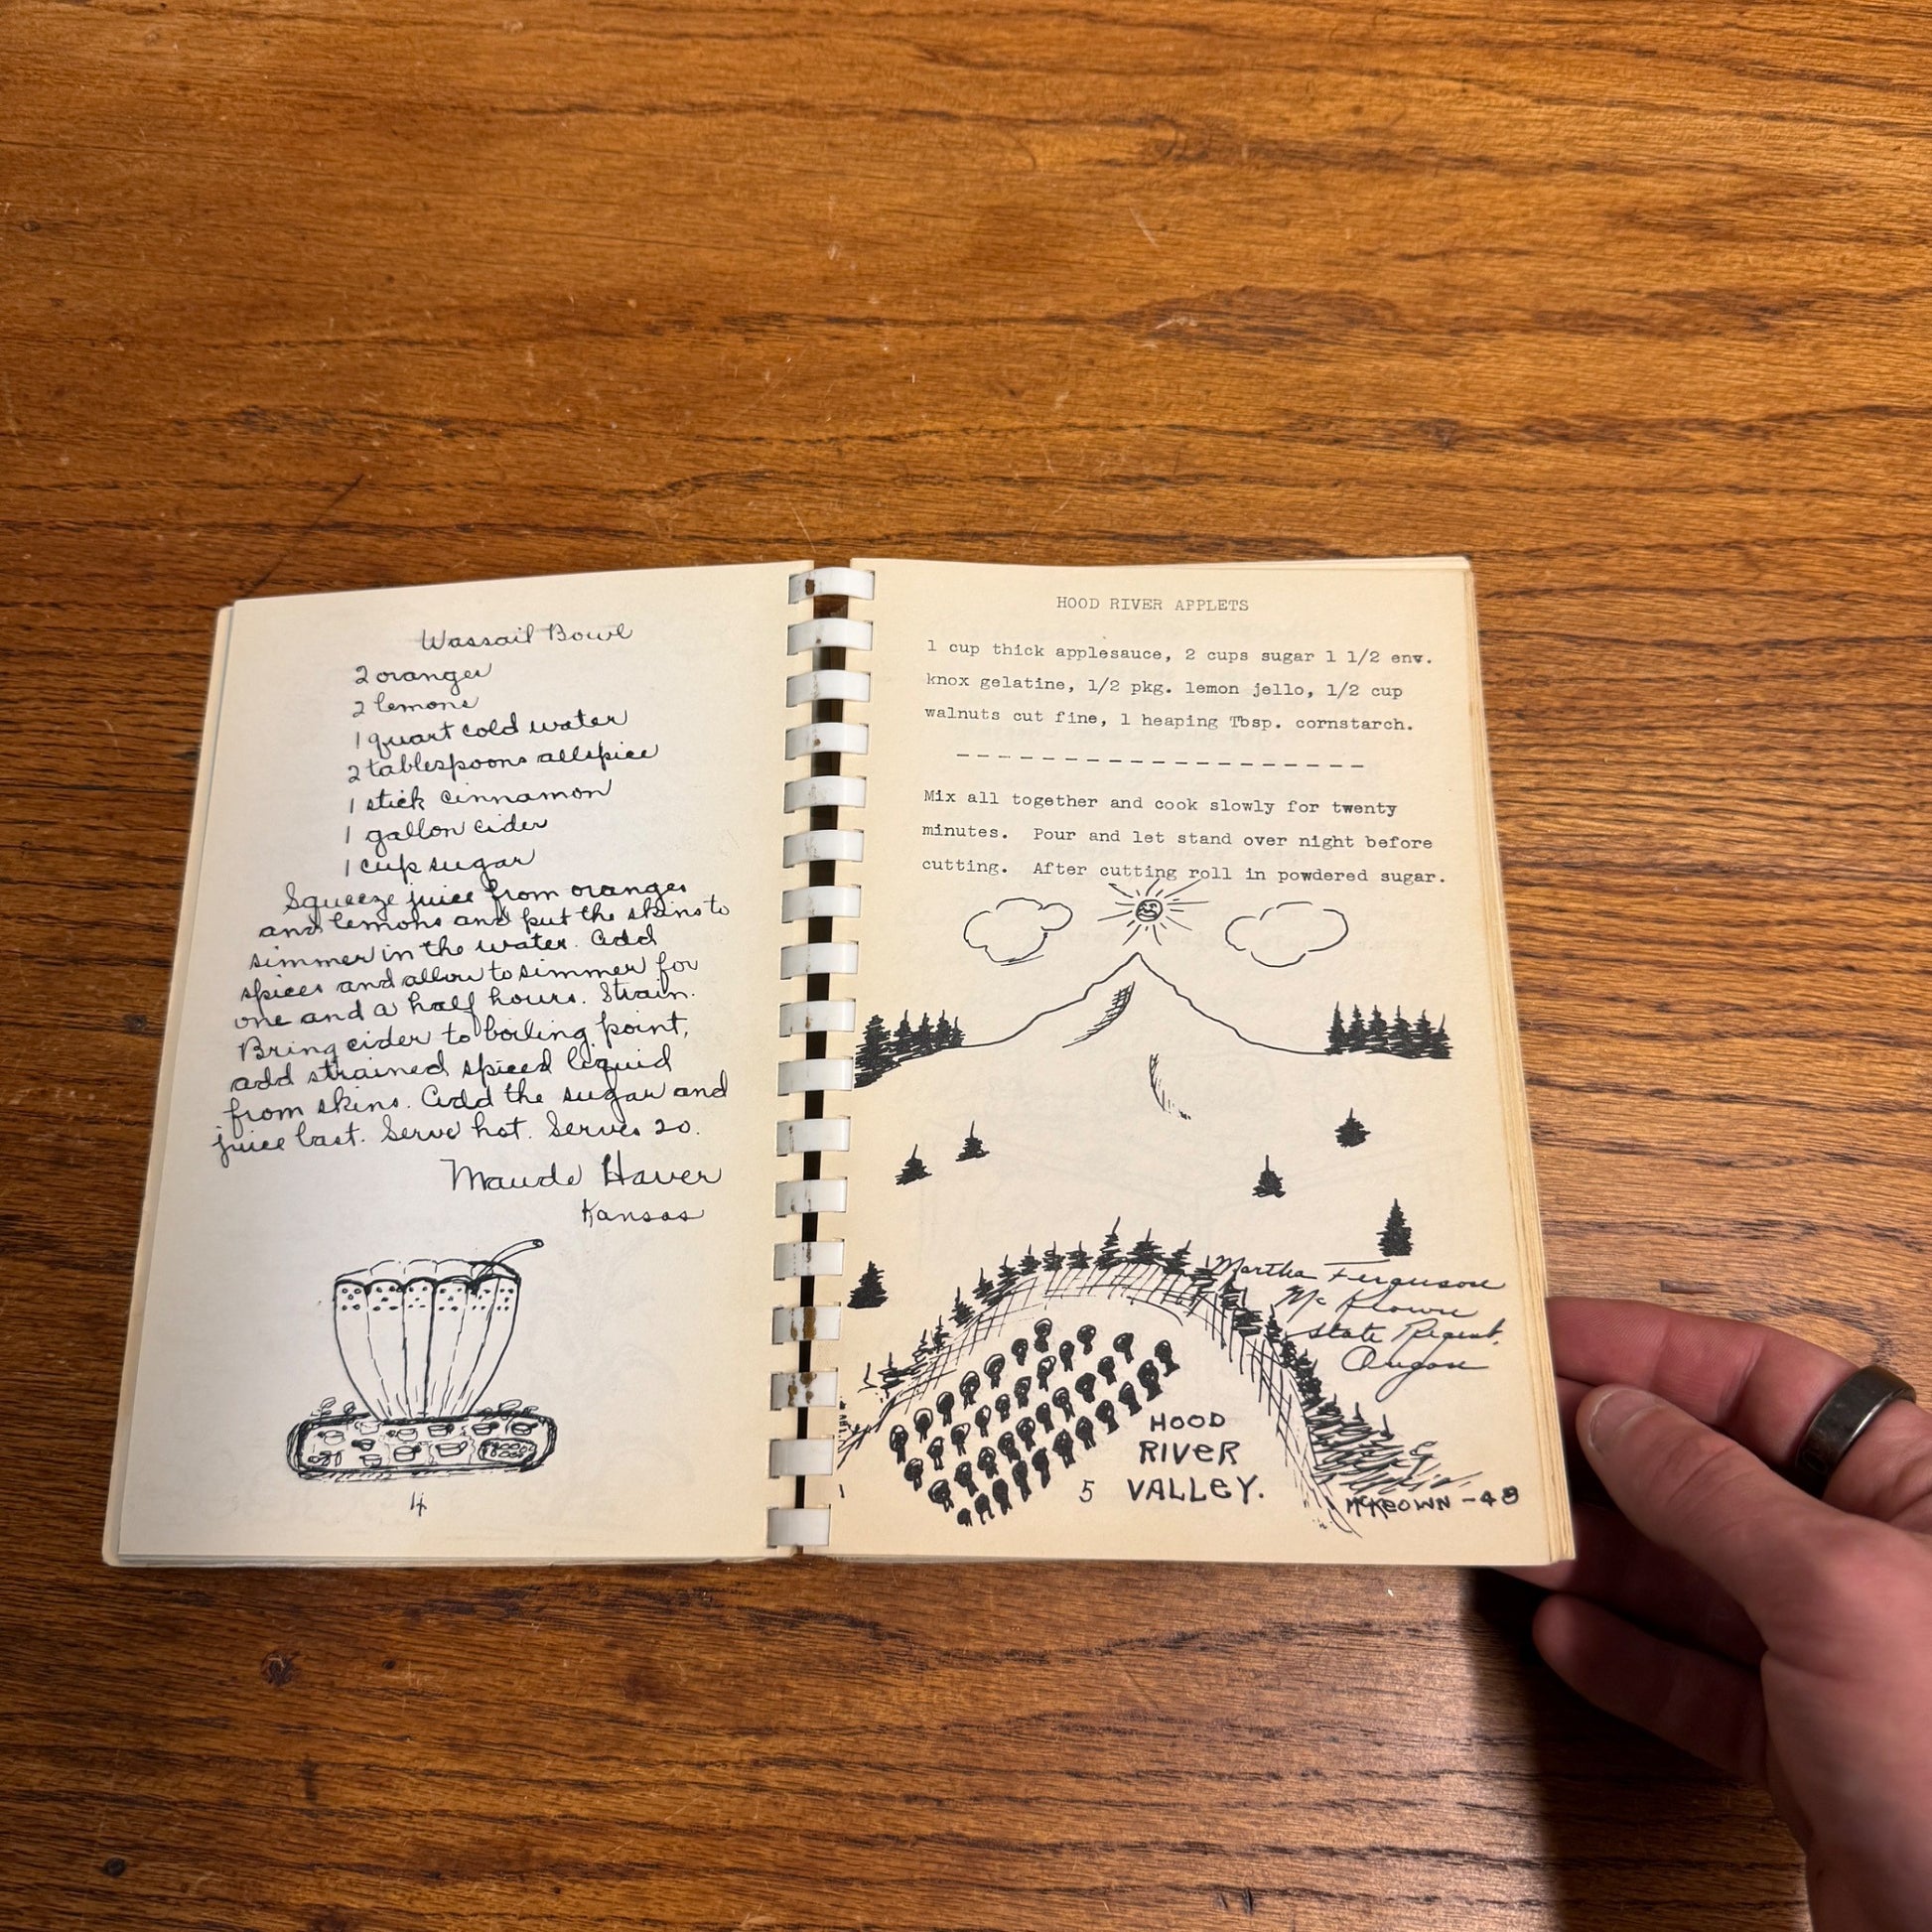 Wassail Bowl
2 oranges
2 lemons
1 quart cold water
2 tablespoons allspice
1 stick cinnamon
1 gallon cider
1 cup sugar
Squeeze juice from oranges
and lemons and put the skins to
simmer in the water. Add
spices and allow to simmer for
one and a half hours. Strain.
Bring cider to boiling point,
add strained spiced liquid
from skins. Add the sugar and
juice last. Serve hot. Serves 20.
Maude Haver
Kansas
4
HOOD RIVER APPLETS
1 cup thick applesauce, 2 cups sugar 1 1/2 env.
knox gelatine, 1/2 pkg. lemon jello, 1/2 cup
walnuts cut fine, 1 heaping Tbsp. cornstarch.
-------------------
Mix all together and cook slowly for twenty
minutes. Pour and let stand over night before
cutting. After cutting roll in powdered sugar.
Martha Ferguson
McKeown
State Regent.
Oregon
HOOD
RIVER
VALLEY.
5
McKEOWN - 48